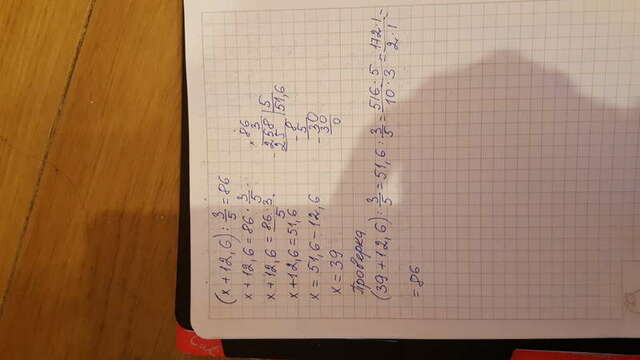 (x+12,6) : 3/5 = 86
x+12,6 = 86 · 3/5
x+12,6 = 86·3/5
x+12,6 = 51,6
x = 51,6 - 12,6
x = 39
86
× 3
258 | 5
- 25 | 51,6
- 8
5
- 30
30
0
Проверка
(39+12,6) : 3/5 = 51,6 : 3/5 = 516·5/10·3 = 172·1/2·1 =
= 86